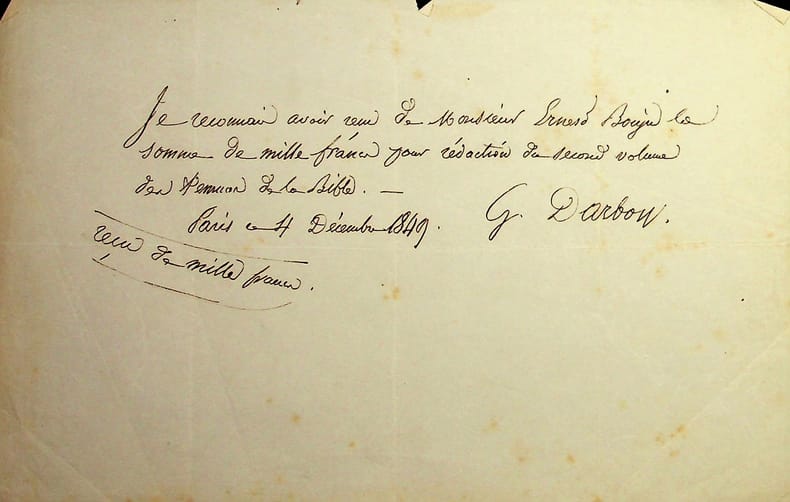 Je reconnais avoir reçu de Monsieur Ernest Bouju la
somme de mille francs pour rédaction du second volume
des Femmes de la Bible. —
Paris ce 4 Décembre 1849. G. Darboy.
reçu de mille francs.